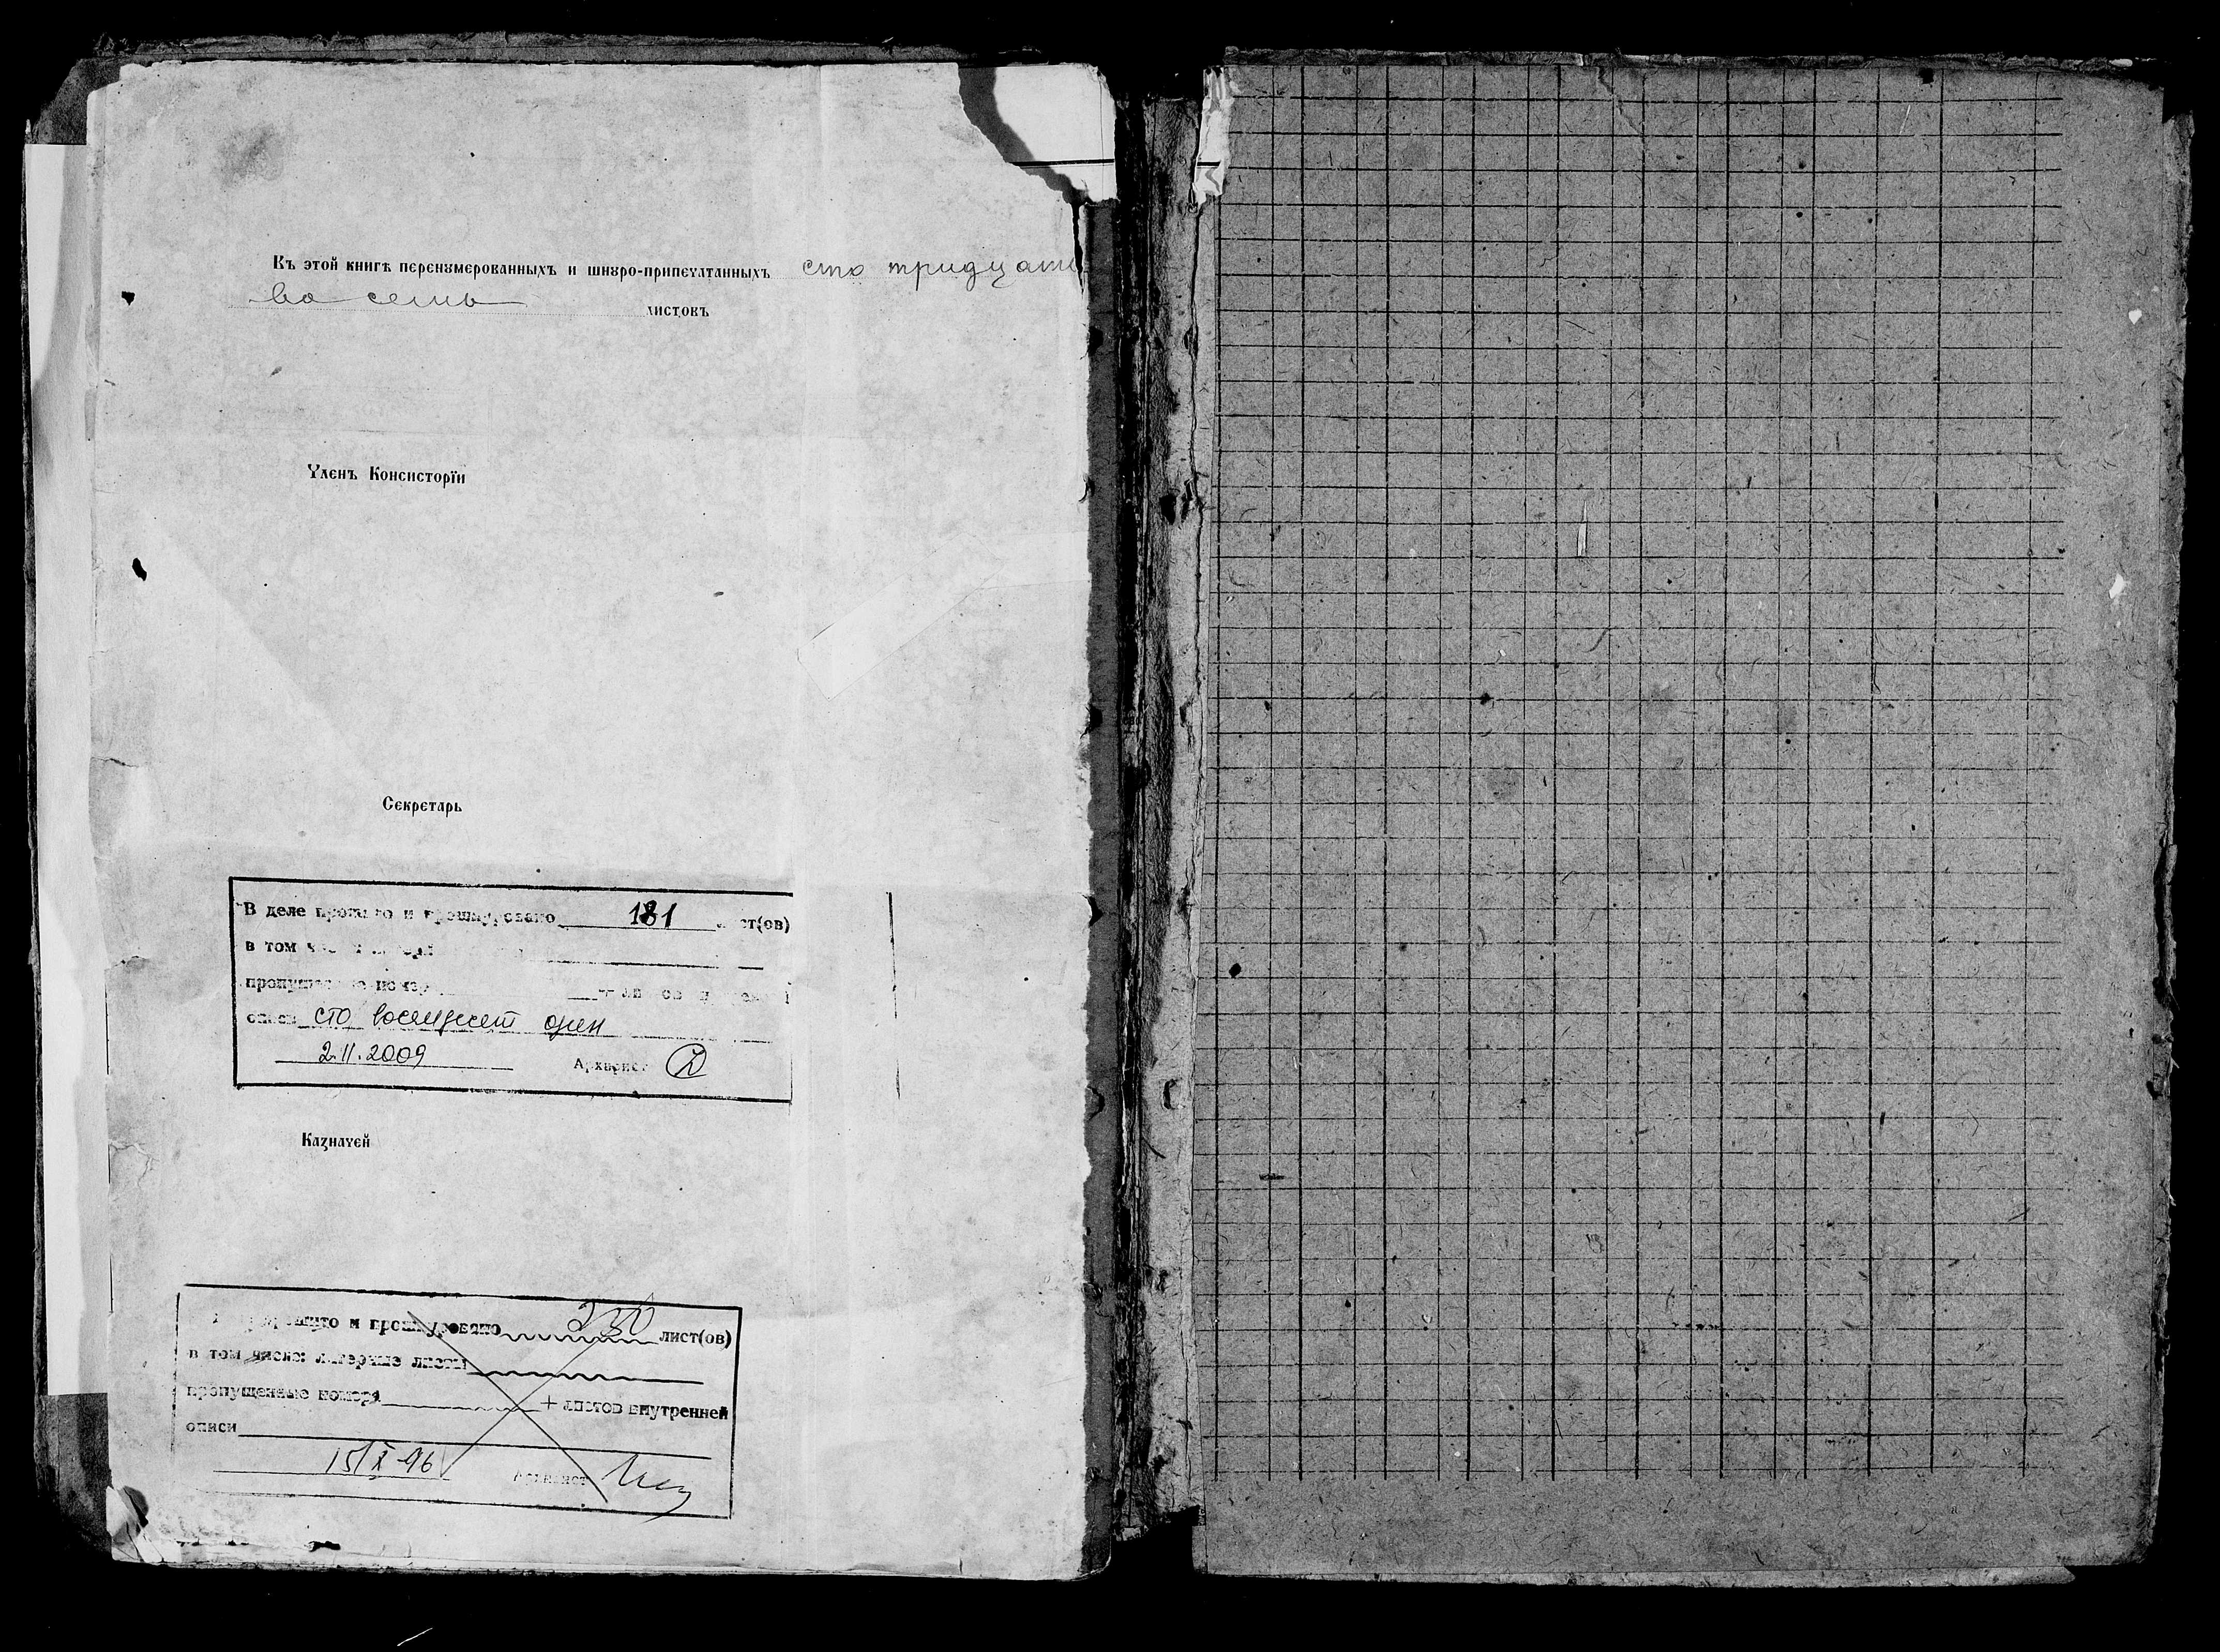 Къ этой книгѣ перенумерованныхъ и шнуро-припечатанныхъ сто тридцать
восемь листовъ
Членъ Консисторїи
Секретарь
В деле прошито и прошнуровано 181 лист(ов)
в том
пропущенные номера + листов
описи сто восемдесят один
2.11.2009 Архивист
Казначей
прошито и прошнуровано 230 лист(ов)
в том числе: литерные листы
пропущенные номера + листов внутренней
описи
15/X-96 Архивист